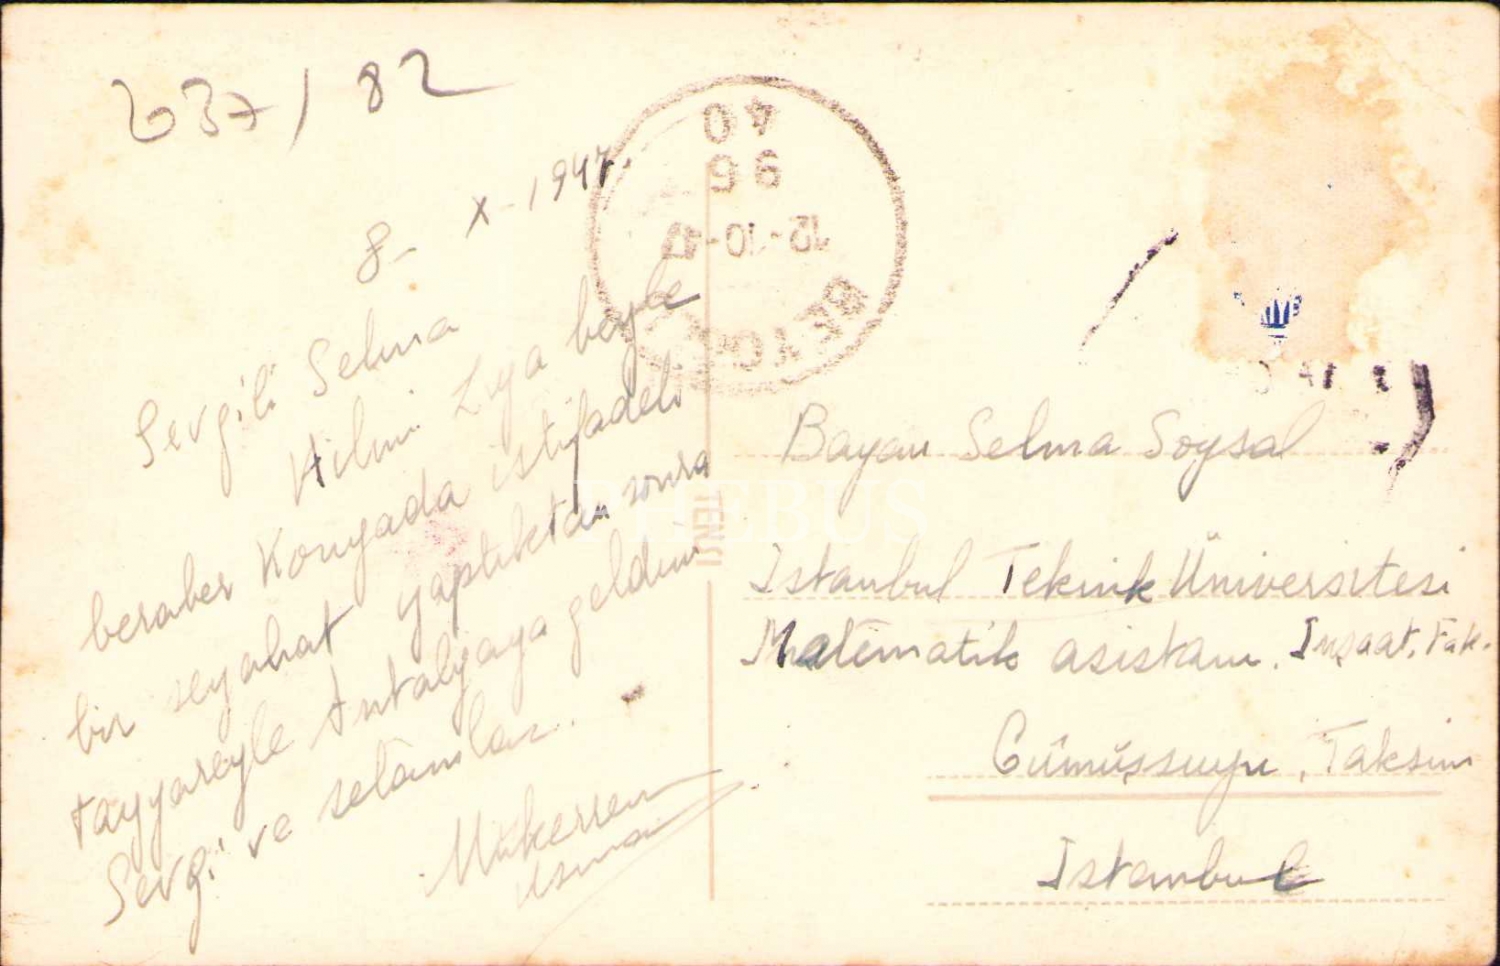 637/82
8- X-1947.
Sevgili Selma
Hilmi Ziya beyle
beraber Konyada istifadeli
bir seyahat yaptıktan sonra
tayyareyle Antalyaya geldim
Sevgi ve selâmlar.
Mükerrem
Usman
40
96
BEYOĞ
TENSI
THEBUS
Bayan Selma Soysal
İstanbul Teknik Üniversitesi
Matematik asistanı. İnşaat. Fak.
Gümüşsuyu, Taksim
İstanbul